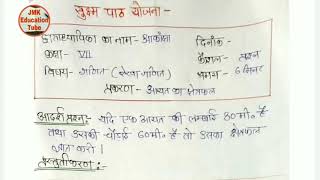 JMK
Education
Tube
सूक्ष्म पाठ योजना -
छात्राध्यापिका का नाम - आकांक्षा दिनाँक -
कक्षा - VII कौशल - प्रश्न
विषय - गणित (रेखागणित) समय - 6 मिनट
प्रकरण - आयत का क्षेत्रफल
आदर्श प्रश्न:- यदि एक आयत की लम्बाई 80 मी० है
तथा उसकी चौड़ाई 60 मी० है तो उसका क्षेत्रफल
ज्ञात करो ।
प्रस्तुतीकरण:-